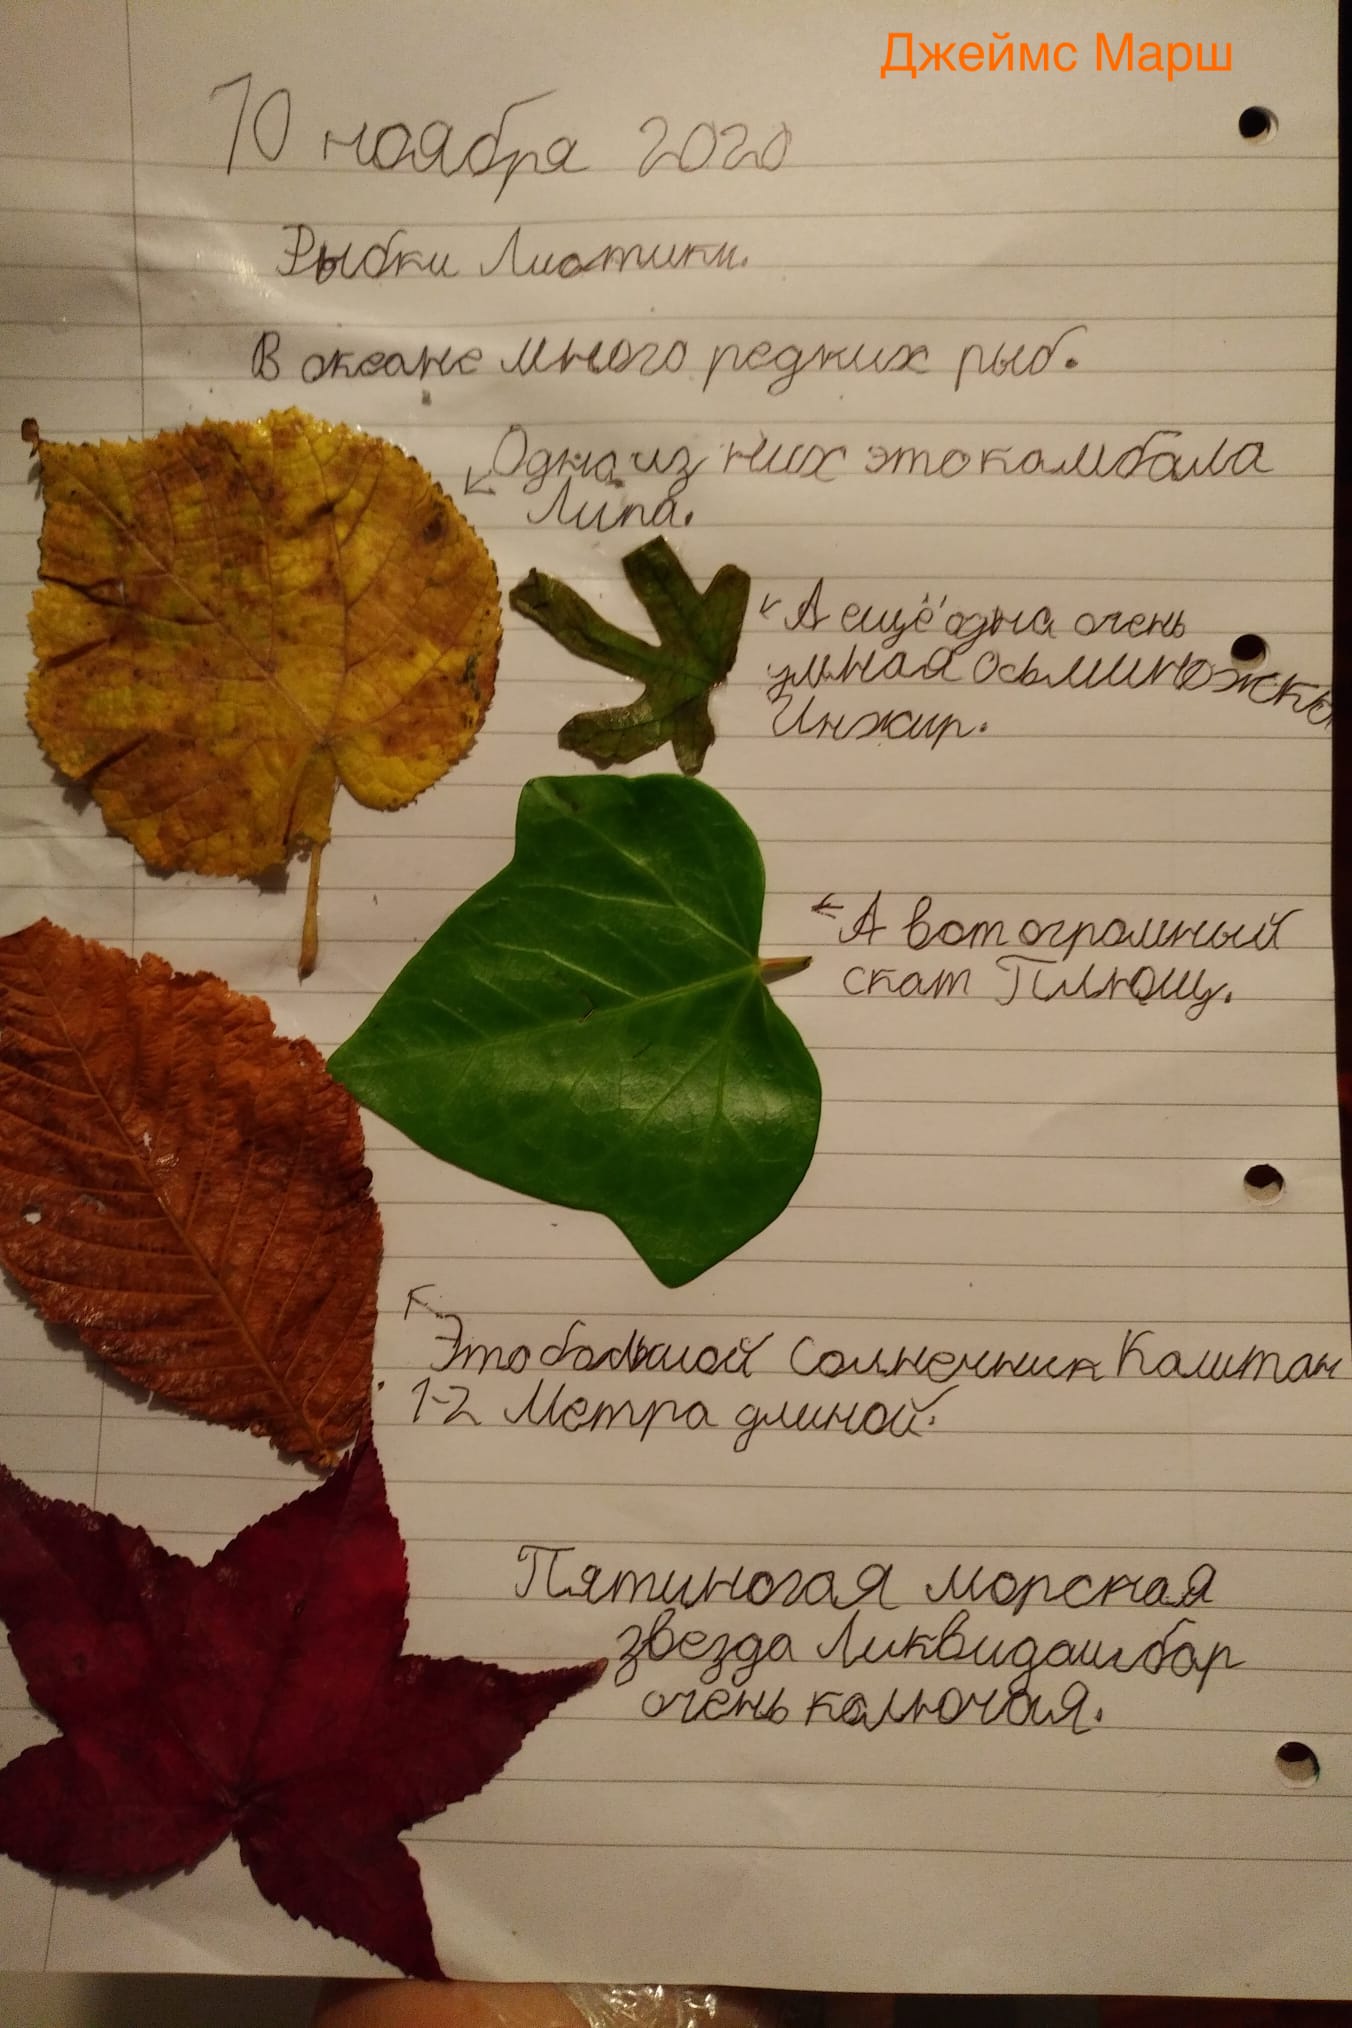 Джеймс Марш
10 ноября 2020
Рыбки Листики.
В океане много редких рыб.
Одна из них это камбала
Липа.
А ещё одна очень
умная осьминожка
Инжир.
А вот огромный
скат Плющ.
Это большой Солнечник Каштан
1-2 Метра длиной.
Пятиногая морская
звезда Ликвидамбар
очень колючая.